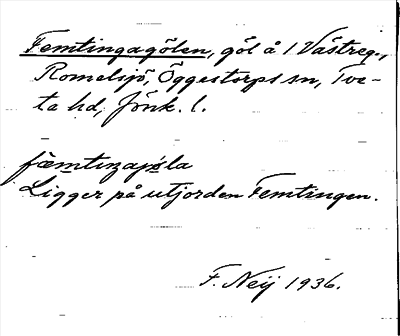 Femtingagölen, göl å 1 Västreg.,
Romelsjö, Öggestorps sn, Tve-
ta hd, Jönk. l.
fæmtiŋajɵla
Ligger på utjorden Femtingen.
F. Neij 1936.